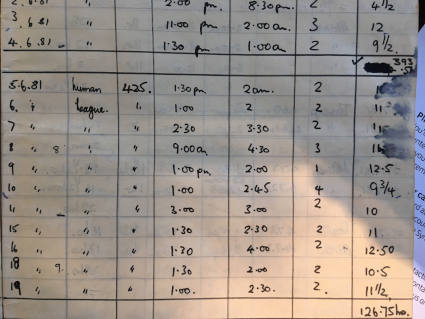 2. 6.81 " 2.00 pm. 8.30 pm. 2 4 1/2
3 " 11.00 pm. 2.00 am. 3 12
4. 6.81 - " 1.30 pm 1.00 a 2 9 1/2
393
5.6.81 human 425. 1.30 pm 2 am. 2
6. " League. " 1.00 2 2 11
7 " " " 2.30 3.30 2 11
8 " 8 " " 9.00 am 4.30 3
9 " " " 1.00 pm 2.00 1 12.5
10 " " " 1.00 2.45 4 9 3/4
11 " - " " 3.00 3.00 2 10
15 " " " 1.30 2.30 2 11
16 " " " 1.30 4.00 2 12.50
18 " 9. " " 1.30 2.00 2 10.5
19 " " " 1.00. 2.30. 2. 11 1/2
126.75 ho.